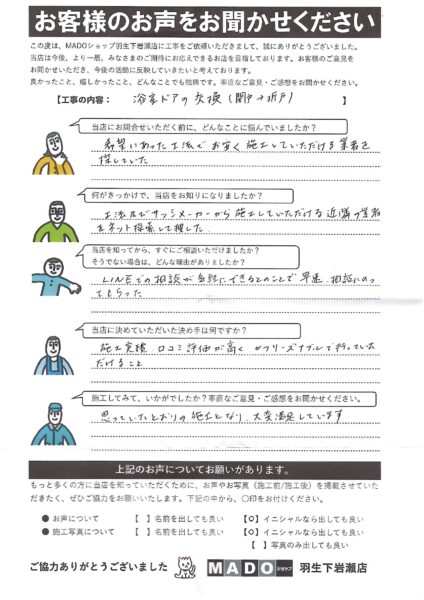 お客様のお声をお聞かせください
この度は、MADOショップ羽生下岩瀬店に工事をご依頼いただきまして、誠にありがとうございました。
当店は今後、より一層、みなさまのご期待にお応えできるお店を目指しております。お客様のご意見を
お伺いさせていただき、今後の活動に反映していきたいと考えております。
良かったこと、嬉しかったこと、どんなことでも結構です。率直なご意見・ご感想をお聞かせください。
【工事の内容： 浴室ドアの交換(開戸→折戸) 】
当店にお問合せいただく前に、どんなことに悩んでいましたか？
希望にあった工法でお安く施工していただける業者を
探していた
何がきっかけで、当店をお知りになりましたか？
工法及びサッシメーカーから施工していただける近隣の業者
をネット検索して探した
当店を知ってから、すぐにご相談いただけましたか？
そうでない場合は、どんな理由がありましたか？
LINEでの相談が気軽にできるとのことで早速、相談にのっ
てもらった
当店に決めていただいた決め手は何ですか？
施工実績 口コミ評価が高く かつリーズナブルで行っていた
だけること
施工してみて、いかがでしたか？率直なご意見・ご感想をお聞かせください。
思っていたとおりの施工となり、大変満足しています
上記のお声についてお願いがあります。
もっと多くの方に当店を知っていただくために、お声やお写真（施工前/施工後）を掲載させていた
だきたく、ぜひご協力をお願いいたします。下記の中から、〇印をお付けください。
● お声について 【 】名前を出しても良い 【〇】イニシャルなら出しても良い
● 施工写真について 【 】名前を出しても良い 【〇】イニシャルなら出しても良い
【 】写真のみ出しても良い
ご協力ありがとうございました MADOショップ 羽生下岩瀬店